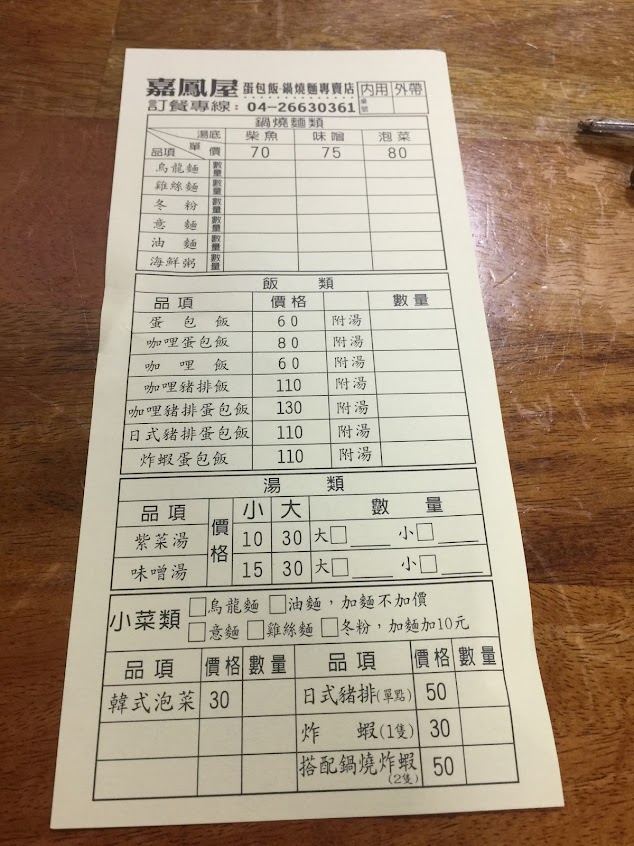 嘉鳳屋 蛋包飯·鍋燒麵專賣店 內用 外帶
訂餐專線：04-26630361 桌號
鍋燒麵類
湯底 柴魚 味噌 泡菜
品項 單價 70 75 80
烏龍麵 數量
雞絲麵 數量
冬粉 數量
意麵 數量
油麵 數量
海鮮粥 數量
飯類
品項 價格 數量
蛋包飯 60 附湯
咖哩蛋包飯 80 附湯
咖哩飯 60 附湯
咖哩豬排飯 110 附湯
咖哩豬排蛋包飯 130 附湯
日式豬排蛋包飯 110 附湯
炸蝦蛋包飯 110 附湯
湯類
品項 價格 小 大 數量
紫菜湯 10 30 大□ 小□
味噌湯 15 30 大□ 小□
小菜類 □烏龍麵 □油麵，加麵不加價
□意麵 □雞絲麵 □冬粉，加麵加10元
品項 價格 數量 品項 價格 數量
韓式泡菜 30 日式豬排(單點) 50
炸蝦(1隻) 30
搭配鍋燒炸蝦(2隻) 50